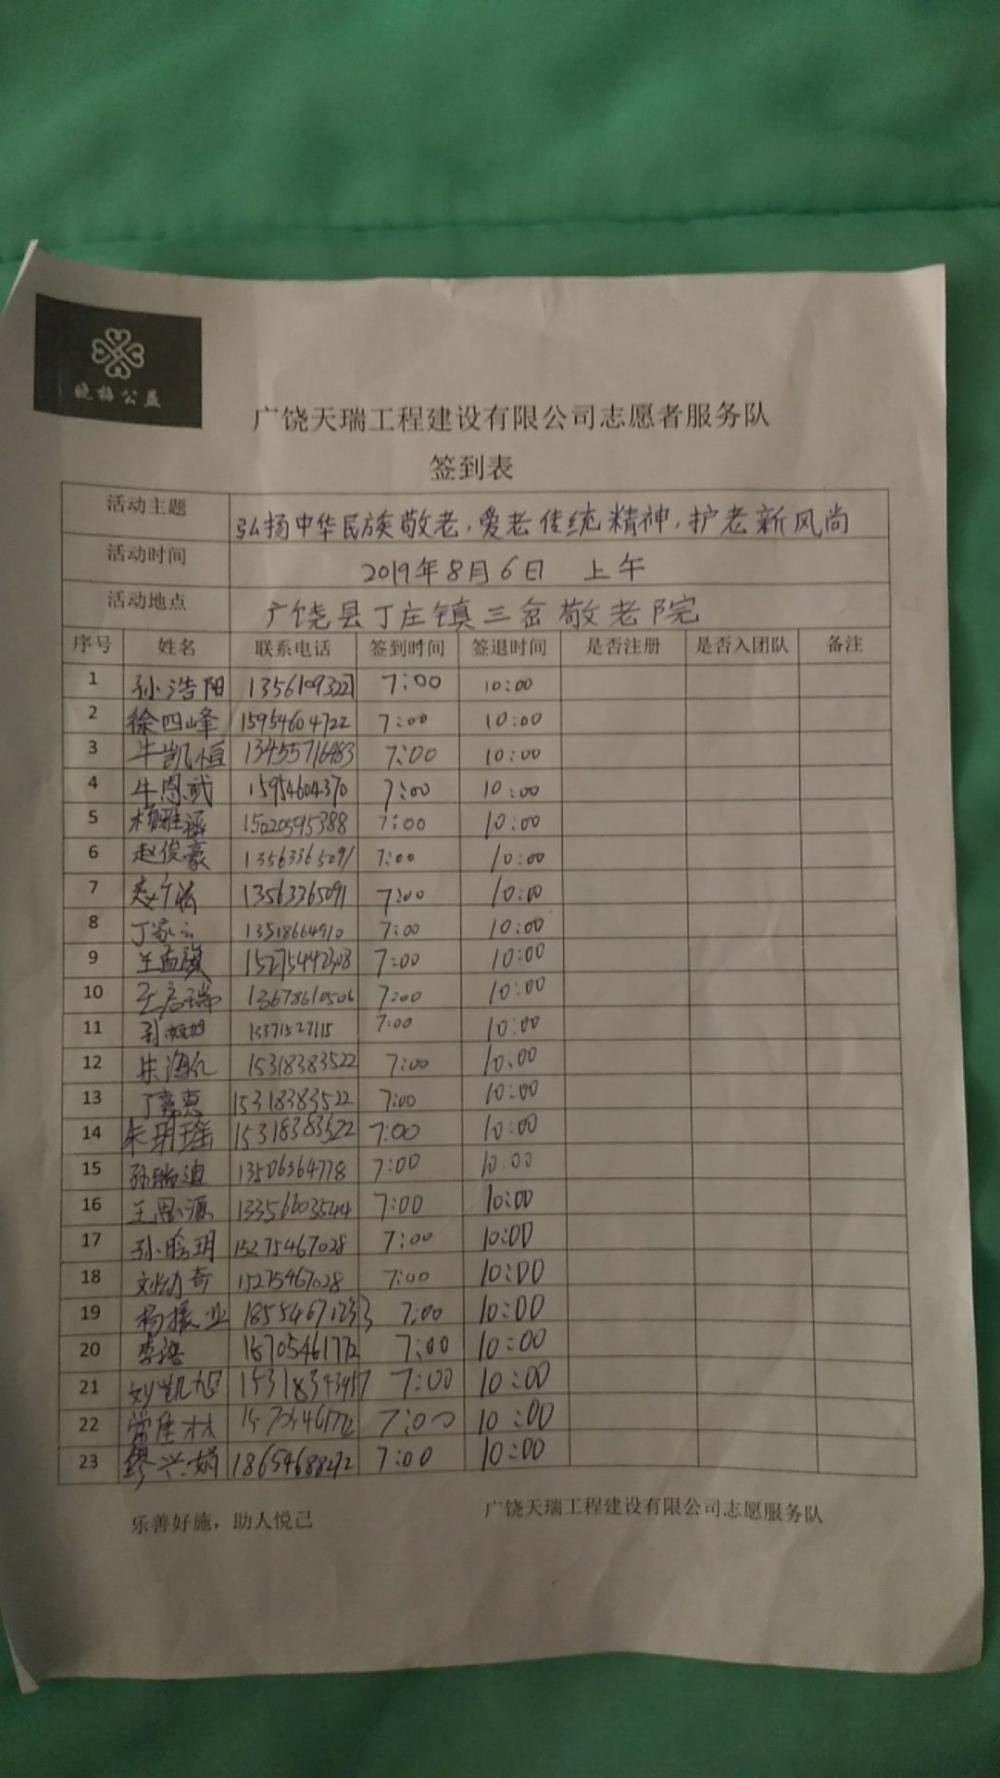 晓梅公益
广饶天瑞工程建设有限公司志愿者服务队
签到表
活动主题 弘扬中华民族敬老,爱老传统精神,护老新风尚
活动时间 2019年8月6日 上午
活动地点 广饶县丁庄镇三岔敬老院
序号 姓名 联系电话 签到时间 签退时间 是否注册 是否入团队 备注
1 孙浩阳 13561093221 7:00 10:00
2 徐四峰 15954604722 7:00 10:00
3 牛凯恒 13455716483 7:00 10:00
4 牛恩或 15954604370 7:00 10:00
5 杨雅涵 15020595388 7:00 10:00
6 赵俊豪 13563365091 7:00 10:00
7 13563365091 7:00 10:00
8 丁家云 13518664910 7:00 10:00
9 王孟骐 15275442308 7:00 10:00
10 王启瑞 13678610506 7:00 10:00
11 13371527115 7:00 10:00
12 朱海仁 15318383522 7:00 10:00
13 丁嘉惠 15318383522 7:00 10:00
14 朱玥瑶 15318383522 7:00 10:00
15 孙瑞迪 13506364778 7:00 10:00
16 王思源 13356603544 7:00 10:00
17 孙晗玥 15275467028 7:00 10:00
18 刘幼奇 15275467028 7:00 10:00
19 杨振业 18554671233 7:00 10:00
20 15705461772 7:00 10:00
21 刘凯旭 15318343457 7:00 10:00
22 常佳林 15705461772 7:00 10:00
23 缪兴娟 18654688292 7:00 10:00
乐善好施,助人悦己 广饶天瑞工程建设有限公司志愿服务队